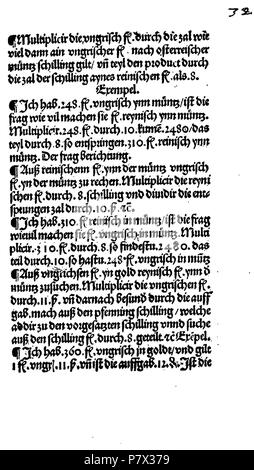 32
¶Multiplicir die vngrisch fl. durch die zal wie
viel dann ain vngrischer fl. nach osterreischer
müntz schilling gilt/ vñ teyl den product durch
die zal der schilling aynes reinischen fl. als .8.
Exempel.
¶Ich hab .248. fl. vngrisch ynn müntz/ ist die
frag wie vil machen sie fl. reynisch ynn müntz.
Multiplicir .248. fl. durch .10. kumē .2480/ das
teyl durch .8. so entspringen .310. fl. reinisch ynn
müntz. Der frag berichtung.
¶Auß reinischenn fl. ynn der müntz vngrisch
fl. yn der müntz zu rechen. Multiplicir die reyni
schen fl. durch .8. schilling vnd diuidir die ent
spungen zal durch .10. ß. ꝛc.
¶Ich hab .310. fl. reinisch in müntz/ ist die frag
wieuil machen sie fl. vngrisch in müntz. Multi
plicir .310. fl. durch .8. so findestu .2480. das
teil durch .10. so hastu .248. fl. vngrisch in müntz
¶Auß vngrichsen fl. yn gold reynisch fl. ynn d
müntz zusuchen. Multiplicir die vngrischen fl.
durch .11. ß. vñ darnach besund durch die auff
gab. mach auß den pfenning schilling/ welche
addir zu den vorgesatzten schilling vnnd suche
auß den schilling fl. durch .8. geteilt. ꝛc Exēpel.
¶Ich hab .360. fl. vngrisch jn goldt/ vnd gilt
1 fl. vngr. 11. ß. vñ ist die auffgab .12. ₰. Ist die
alamy
Image ID: P7X379
www.alamy.com